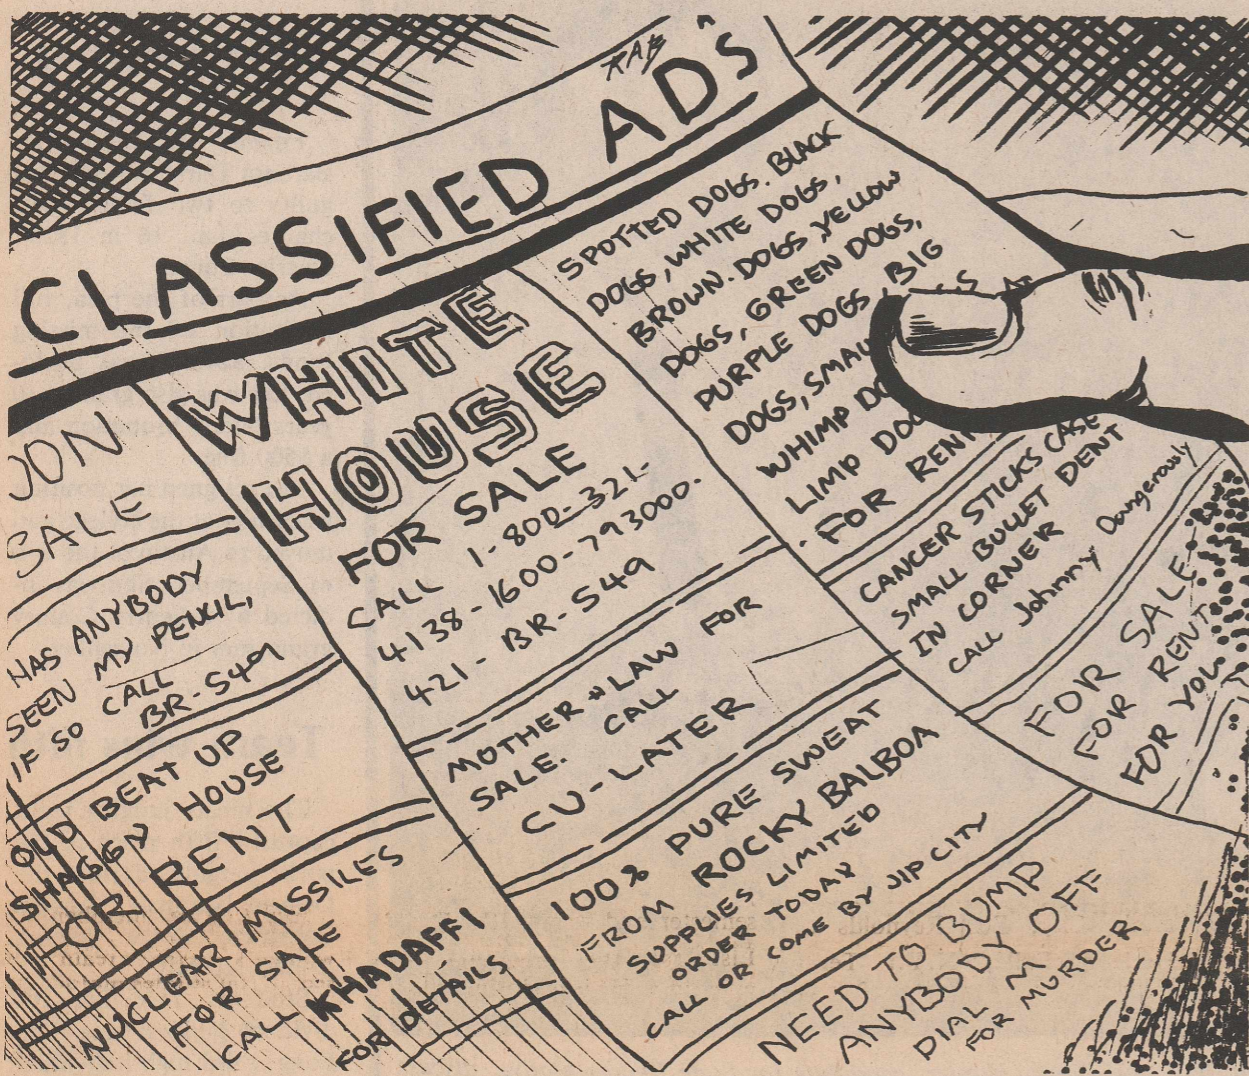 RAB
CLASSIFIED ADS
OON
SALE
HAS ANYBODY
SEEN MY PENCIL,
IF SO CALL
BR-S49
OLD BEAT UP
SHAGGY HOUSE
FOR RENT
NUCLEAR MISSILES
FOR SALE
CALL KHADAFFI
FOR DETAILS
WHITE
HOUSE
FOR SALE
CALL 1-800-321-
4138-1600-793000-
421-BR-S49
MOTHER IN LAW FOR
SALE. CALL
CU-LATER
100% PURE SWEAT
FROM ROCKY BALBOA
SUPPLIES LIMITED
ORDER TODAY
CALL OR COME BY JIP CITY
NEED TO BUMP
ANYBODY OFF
DIAL M
FOR MURDER
SPOTTED DOGS. BLACK
DOGS, WHITE DOGS,
BROWN. DOGS, YELLOW
DOGS, GREEN DOGS,
PURPLE DOGS, BIG
DOGS, SMALL
WHIMP DO
LIMP DOG
FOR RENT
CANCER STICKS CASE
SMALL BULLET DENT
IN CORNER
CALL Johnny Dangerously
FOR SALE
FOR RENT
FOR YOU